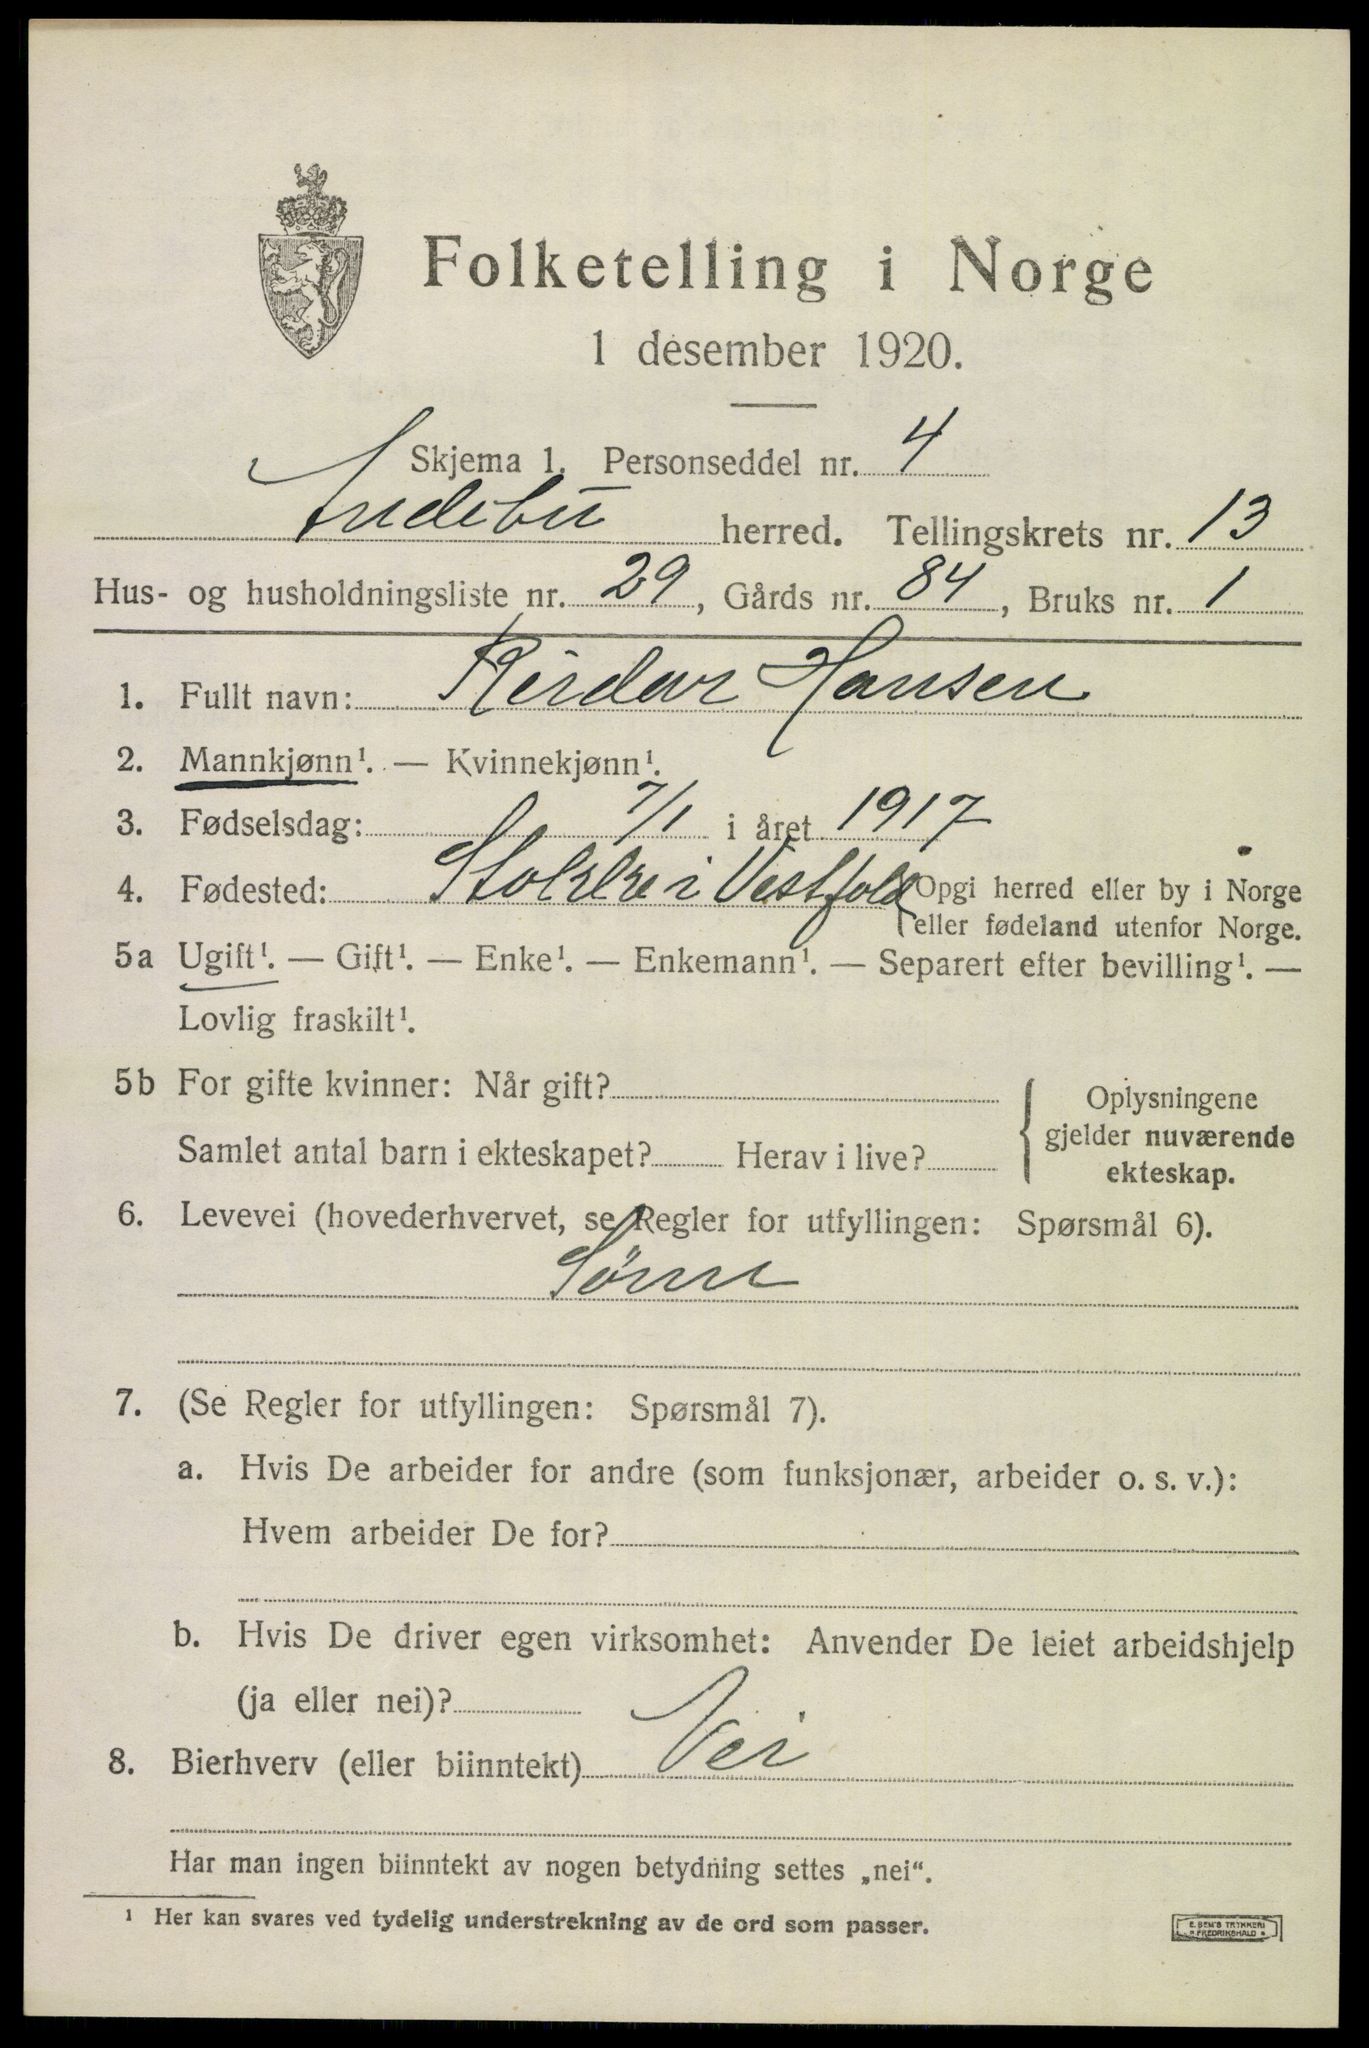 Folketelling i Norge
1 desember 1920.
Skjema 1. Personseddel nr. 4
Andebu herred. Tellingskrets nr. 13
Hus- og husholdningsliste nr. 29, Gårds nr. 84, Bruks nr. 1
1. Fullt navn: Reidar Hansen
2. Mannkjønn¹. — Kvinnekjønn¹.
3. Fødselsdag: 7/1 i året 1917
4. Fødested: Stokke i Vestfold { Opgi herred eller by i Norge
eller fødeland utenfor Norge.
5a Ugift¹. — Gift¹. — Enke¹. — Enkemann¹. — Separert efter bevilling¹. —
Lovlig fraskilt¹.
5b For gifte kvinner: Når gift?
Samlet antal barn i ekteskapet? Herav i live?
{ Oplysningene
gjelder nuværende
ekteskap.
6. Levevei (hovederhvervet, se Regler for utfyllingen: Spørsmål 6).
Sønn
7. (Se Regler for utfyllingen: Spørsmål 7).
a. Hvis De arbeider for andre (som funksjonær, arbeider o. s. v.):
Hvem arbeider De for?
b. Hvis De driver egen virksomhet: Anvender De leiet arbeidshjelp
(ja eller nei)?
8. Bierhverv (eller biinntekt) Nei
Har man ingen biinntekt av nogen betydning settes „nei“.
¹ Her kan svares ved tydelig understrekning av de ord som passer.
E. SEM'S TRYKKERI
FREDRIKSHALD